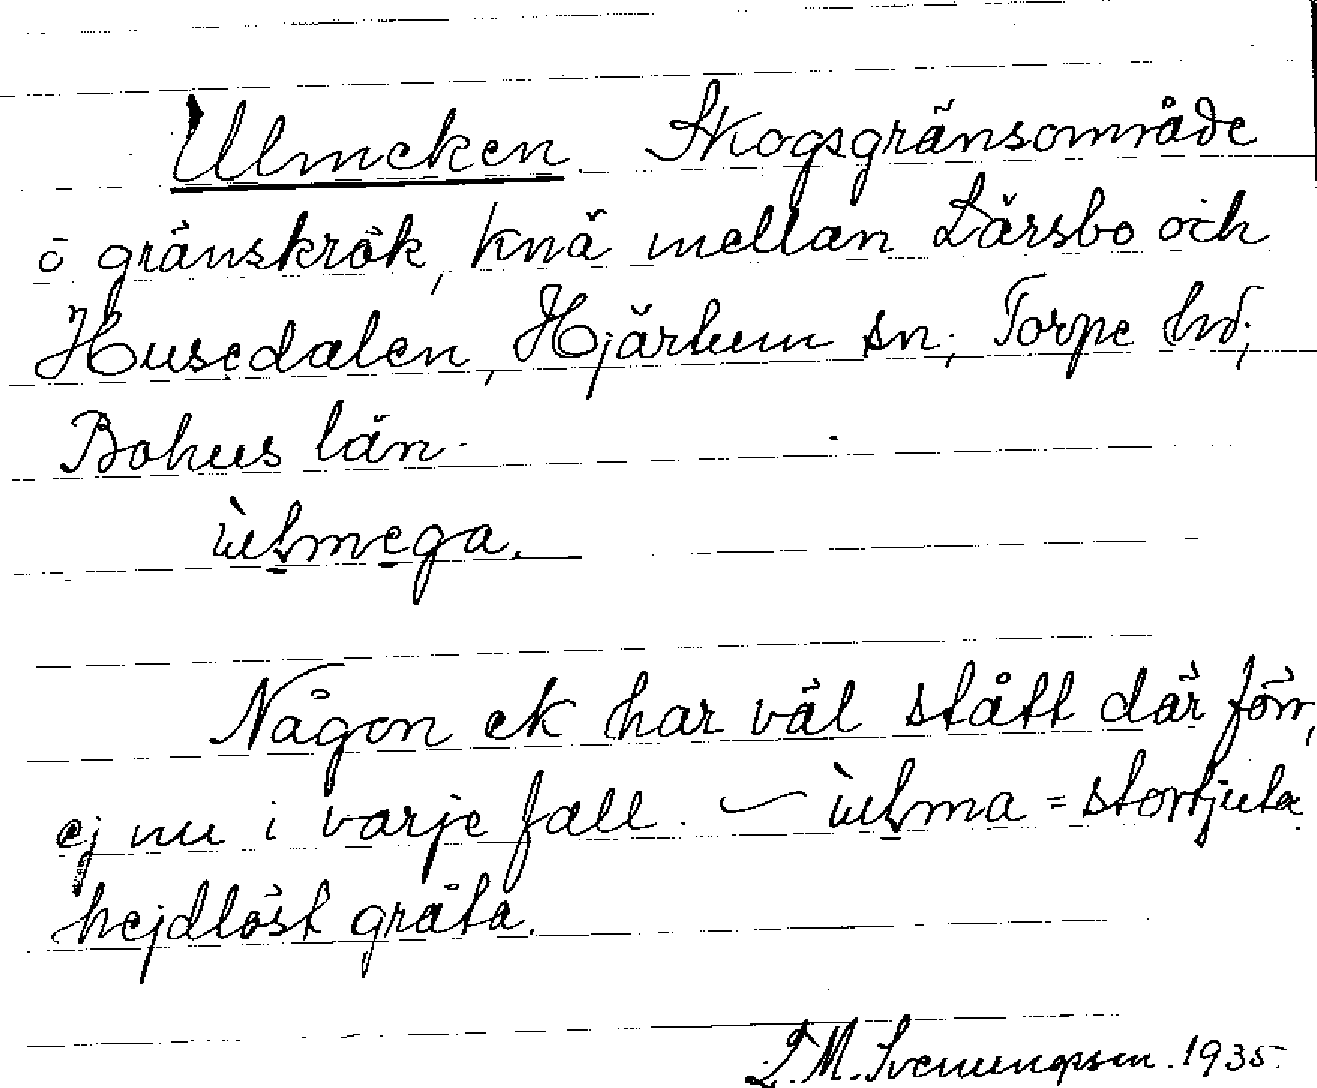 Ulmeken. Skogsgränsområde
ō gränskrök, knä mellan Lärsbo och
Husedalen, Hjärtum sn; Torpe hd;
Bohus län.
ùlmega.
Någon ek har väl stått där förr,
ej nu i varje fall. — ùlma = stortjuta
hejdlöst gråta.
L. M. Svenungsson. 1935.